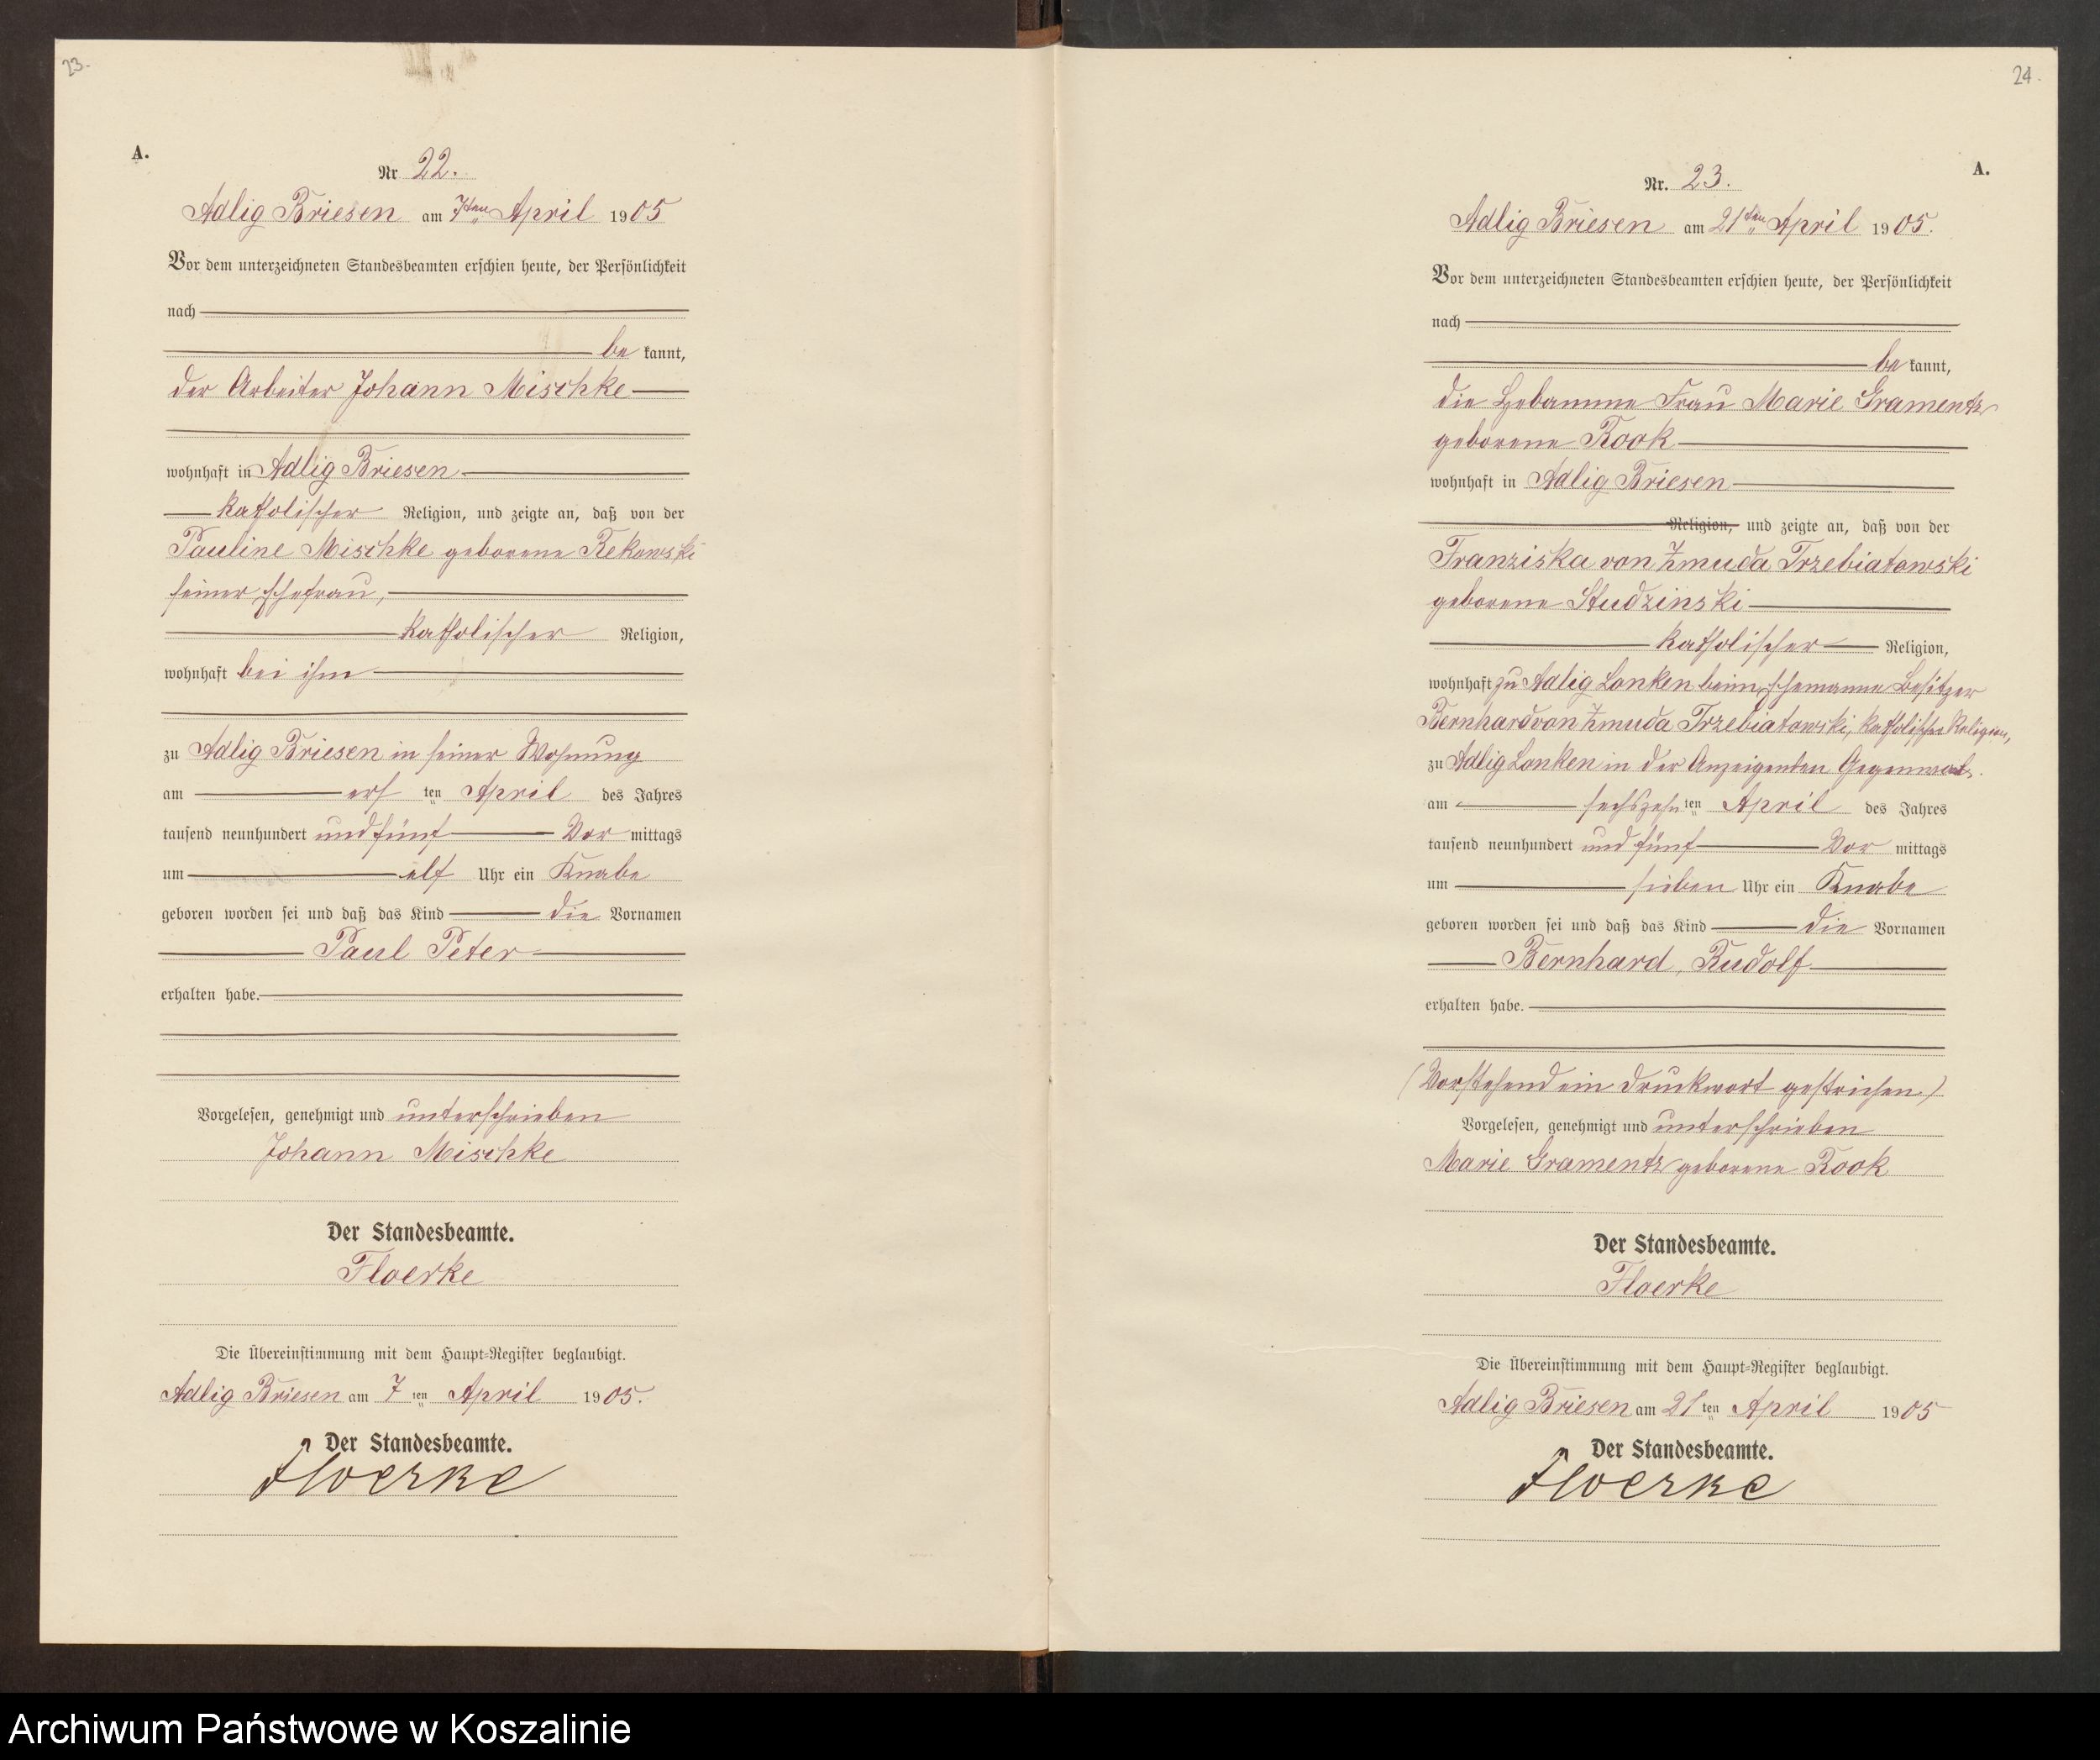 23.
A.
Nr 22.
Adlig Briesen am 7ten April 1905
Vor dem unterzeichneten Standesbeamten erschien heute, der Persönlichkeit
nach
be kannt,
der Arbeiter Johann Mischke
wohnhaft in Adlig Briesen
katholischer Religion, und zeigte an, daß von der
Pauline Mischke geborene Rekowski
seiner Ehefrau,
katholischer Religion,
wohnhaft bei ihm
zu Adlig Briesen in seiner Wohnung
am ers ten April des Jahres
tausend neunhundert und fünf Vor mittags
um elf Uhr ein Knabe
geboren worden sei und daß das Kind die Vornamen
Paul Peter
erhalten habe.
Vorgelesen, genehmigt und unterschrieben
Johann Mischke
Der Standesbeamte.
Floerke
Die Übereinstimmung mit dem Haupt-Register beglaubigt.
Adlig Briesen am 7 ten April 1905.
Der Standesbeamte.
Floerke
24.
A.
Nr. 23.
Adlig Briesen am 21ten April 1905.
Vor dem unterzeichneten Standesbeamten erschien heute, der Persönlichkeit
nach
be kannt,
die Hebamme Frau Marie Gramentz
geborene Kook
wohnhaft in Adlig Briesen
Religion, und zeigte an, daß von der
Franziska von Zmuda Trzebiatowski
geborene Studzinski
katholischer Religion,
wohnhaft zu Adlig Lonken beim Ehemanne Besitzer
Bernhard von Zmuda Trzebiatowski, katholischer Religion,
zu Adlig Lonken in der Anzeigenden Gegenwart
am sechszehn ten April des Jahres
tausend neunhundert und fünf Vor mittags
um sieben Uhr ein Knabe
geboren worden sei und daß das Kind die Vornamen
Bernhard, Rudolf
erhalten habe.
(Vorstehend ein Druckwort gestrichen)
Vorgelesen, genehmigt und unterschrieben
Marie Gramentz geborene Kook
Der Standesbeamte.
Floerke
Die Übereinstimmung mit dem Haupt-Register beglaubigt.
Adlig Briesen am 21 ten April 1905
Der Standesbeamte.
Floerke
Archiwum Państwowe w Koszalinie